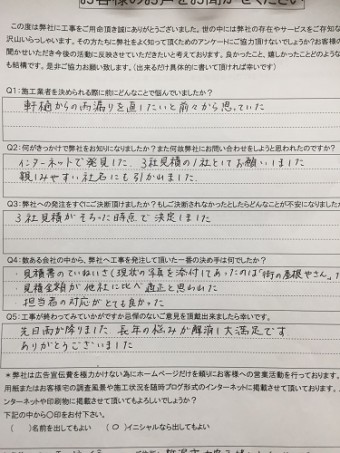 お客様のお声をお聞かせください
この度は弊社に工事をご用命頂き誠にありがとうございました。世の中には弊社の存在やサービスをご存知な
沢山いらっしゃいます。その方たちに弊社をよく知って頂くためのアンケートにご協力頂けないでしょうか?お客様の
聞かせいただき今後の活動に反映させていただきたいと考えております。良かったこと、嬉しかったことどのような
も結構です。是非ご協力お願い致します。(出来るだけ具体的に書いて頂ければ幸いです)
Q1:施工業者を決められる際に前にどんなことで悩んでいましたか?
軒樋からの雨漏りを直したいと前々から思っていた
Q2:何がきっかけで弊社をお知りになりましたか?また何故弊社にお問い合わせをしようと思われたのですか?
インターネットで発見した。3社見積の1社としてお願いしました
親しみやすい社名にも引かれました
Q3:弊社への発注をすぐにご決断頂けましたか?もしご決断されなかったとしたらどんなことが不安になりました
3社見積がそろった時点で決定しました
Q4:数ある会社の中から、弊社へ工事を発注して頂いた一番の決め手は何でしたか?
・見積書のていねいさ(現状の写真を添付してあったのは「街の屋根やさん」だ
・見積金額が他社に比べ適正と思われた
・担当者の対応がとても良かった
Q5:工事が終わってみていかがですか忌憚のないご意見を頂戴出来ましたら幸いです。
元日雨が降りました 長年の悩みが解消し大満足です
ありがとうございました
*弊社は広告宣伝費を極力かけない為にホームページだけを頼りにお客様への営業活動を行っております。
用紙またはお客様宅の調査風景や施工状況を随時ブログ形式のインターネットに掲載させて頂いております。
ンターネットや印刷物に掲載させて頂いてもよろしいでしょうか?
下記の中から〇印をお付下さい。
( )名前を出してもよい (〇)イニシャルなら出してもよい